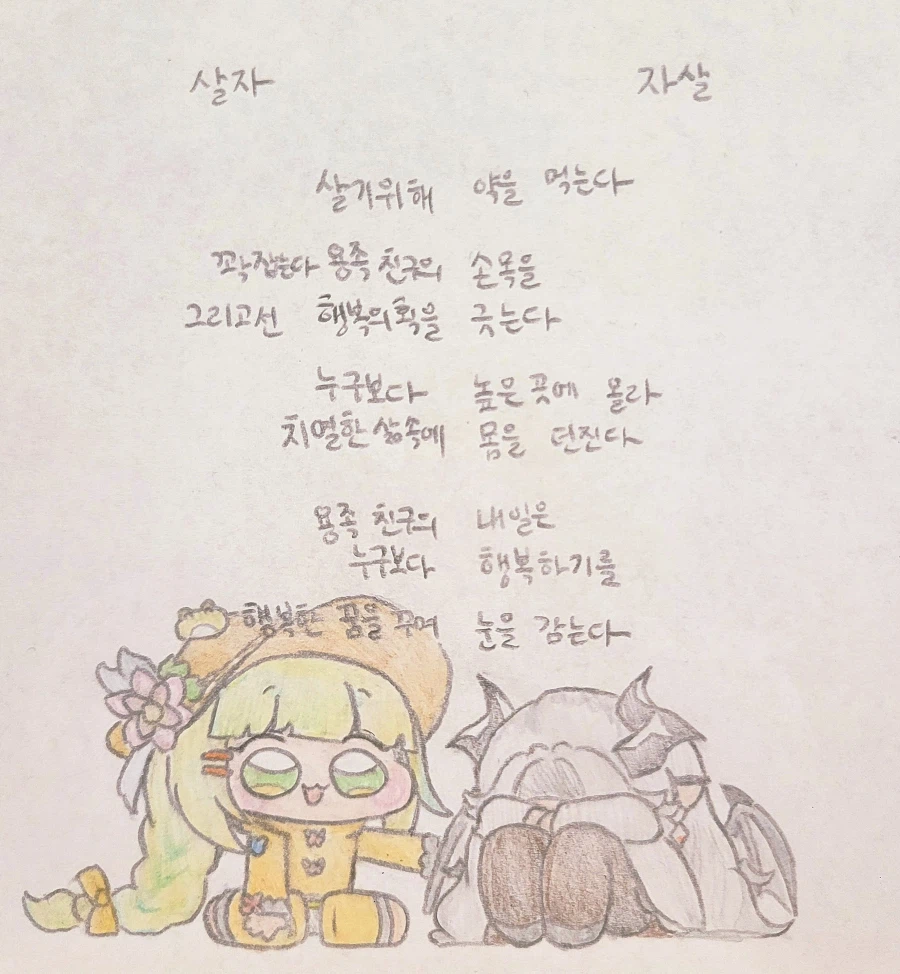 살자 자살
살기위해 약을 먹는다
꽉잡는다 용족 친구의 손목을
그리고선 행복의획을 긋는다
누구보다 높은곳에 올라
치열한 삶속에 몸을 던진다
용족 친구의 내일은
누구보다 행복하기를
행복한 꿈을 꾸며 눈을 감는다